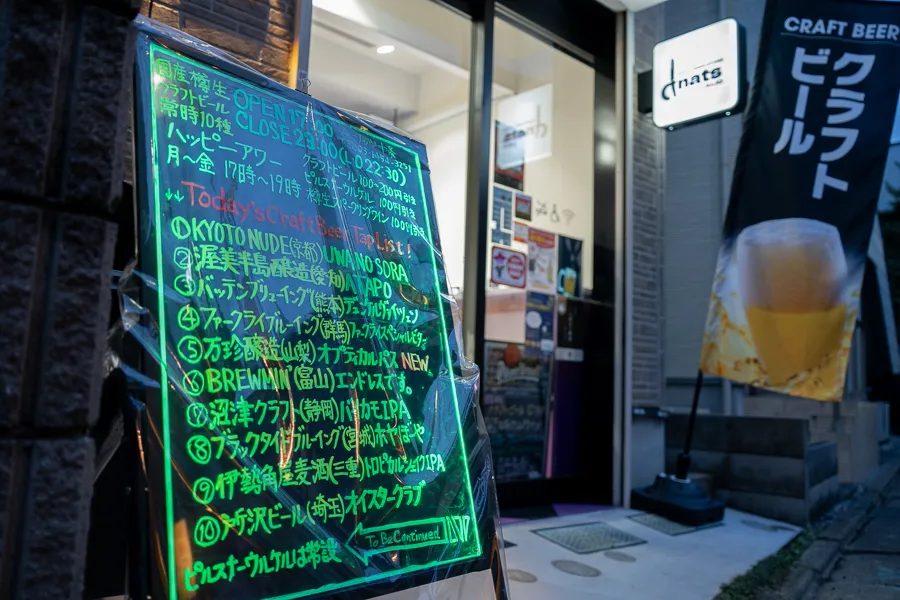 国産樽生
クラフトビール
常時10種
OPEN 17:00
CLOSE 23:00(L.O 22:30)
ハッピーアワー
月〜金 17時〜19時
クラフトビール 100〜200円引き
ピルスナーウルケル 100円引き
樽生スパークリングワイン 100円引き
↓↓Today's Craft Beer Tap List!
①KYOTO NUDE(京都)UWA NO SORA
②渥美半島醸造(愛知)ATAPO
③バッテンブリューイング(熊本)デュンケルヴァイツェン
④ファークライブルーイング(群馬)ファークライスペシャルビタ
⑤万珍醸造(山梨)オプティカルパス NEW
⑥BREWMIN'(富山)エンドレスです。
⑦沼津クラフト(静岡)バカモIPA
⑧ブラックタイドブルーイング(宮城)ホヤぼーや
⑨伊勢角屋麦酒(三重)トロピカルシェイクIPA
⑩所沢ビール(埼玉)オイスタークラブ
To Be Continued
ピルスナーウルケルは常設
dnats
CRAFT BEER
クラフト
ビール